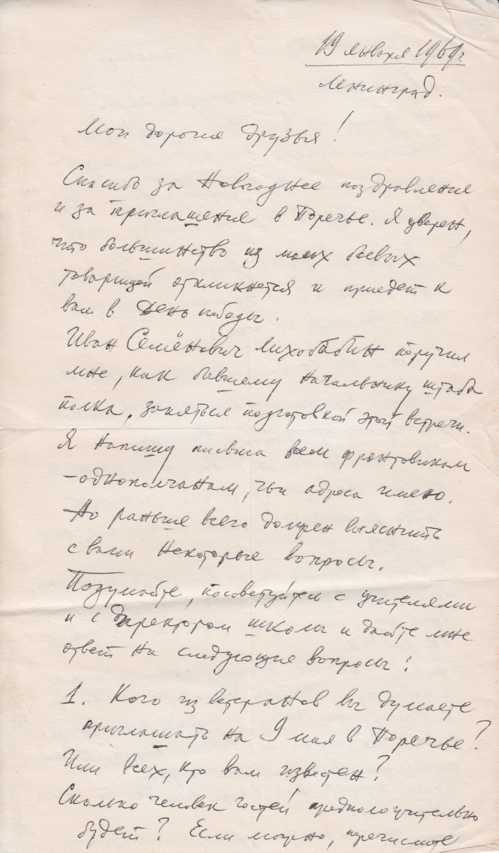 19 января 1969 г.
Ленинград.
Мои дорогие друзья!
Спасибо за Новогоднее поздравление
и за приглашение в Поречье. Я уверен,
что большинство из моих боевых
товарищей откликнется и приедет к
вам в День победы.
Иван Семёнович Лихобабин поручил
мне, как бывшему начальнику штаба
полка, заняться подготовкой этой встречи.
Я напишу письма всем фронтовикам
-однополчанам, чьи адреса имею.
Но раньше всего должен выяснить
с вами некоторые вопросы.
Подумайте, посоветуйтесь с учителями
и с директором школы и дайте мне
ответ на следующие вопросы:
1. Кого из ветеранов вы думаете
приглашать на 9 мая в Поречье?
Или всех, кто вам известен?
Сколько человек гостей предположительно
будет? Если можно, перечислите